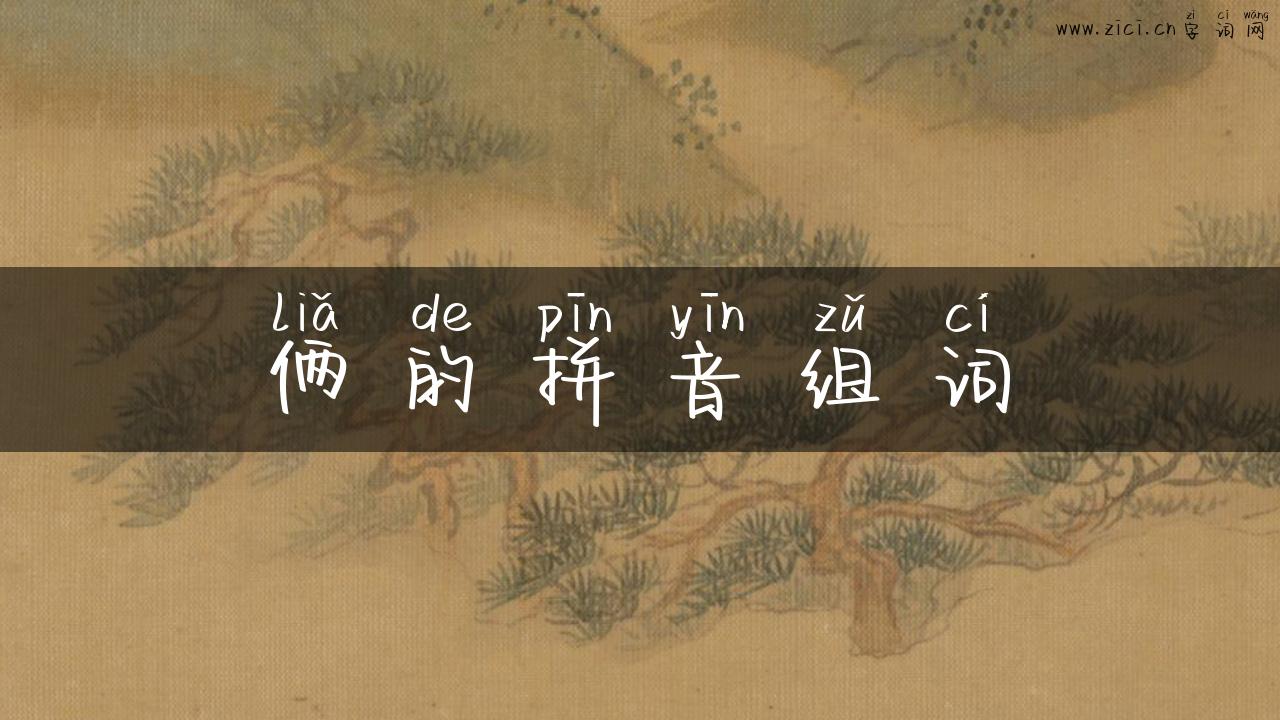 zì cí wǎng
www.zici.cn 字词网
liǎ de pīn yīn zǔ cí
俩的拼音组词